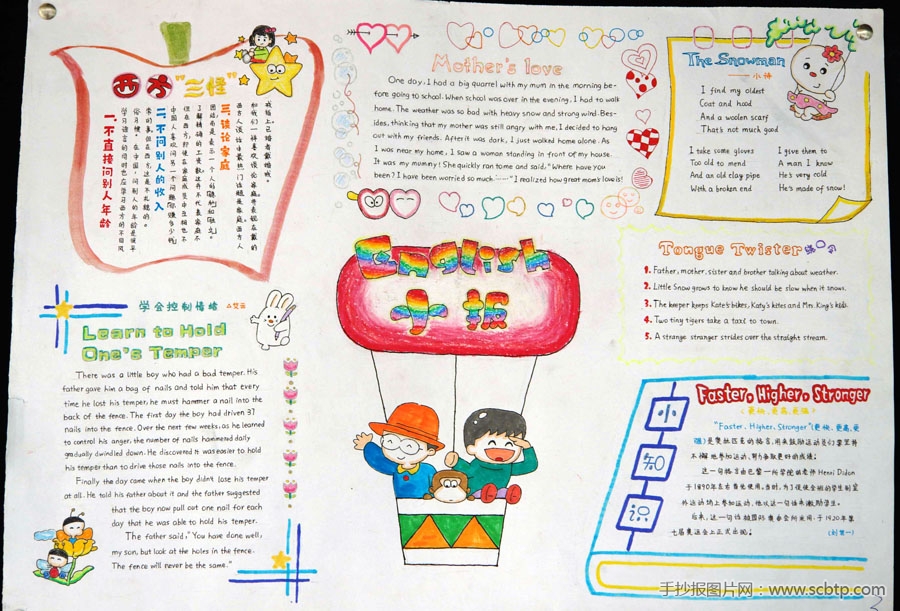 西方"三怪"
一.不直接问别人年龄
二.不问别人的收入
三.谈论家庭
Mother's love
One day, I had a big quarrel with my mum in the morning be-
fore going to school. When school was over in the evening, I had to walk
home. The weather was so bad with heavy snow and strong wind. Bes-
ides, thinking that my mother was still angry with me, I decided to hang
out with my friends. After it was dark, I just walked home alone. As
I was near my home, I saw a woman standing in front of my house.
It was my mummy! She quickly ran to me and said, "Where have you
been? I have been worried so much……" I realized how great mom's love is!
The Snowman
——小诗
I find my oldest
Coat and hood
And a woolen scarf
That's not much good
I take some gloves
Too old to mend
And an old clay pipe
With a broken end
I give them to
A man I know
He's very cold
He's made of snow!
English
小报
Tongue Twister
1. Father, mother, sister and brother talking about weather.
2. Little Snow grows to know he should be slow when it snows.
3. The keeper keeps Kate's bikes, Katy's kites and Mrs. King's kids.
4. Two tiny tigers take a taxi to town.
5. A strange stranger strides over the straight stream.
学会控制情绪
Learn to Hold
One's Temper
There was a little boy who had a bad temper. His
father gave him a bag of nails and told him that every
time he lost his temper, he must hammer a nail into the
back of the fence. The first day the boy had driven 37
nails into the fence. Over the next few weeks, as he learned
to control his anger, the number of nails hammered daily
gradually dwindled down. He discovered it was easier to hold
his temper than to drive those nails into the fence.
Finally the day came when the boy didn't lose his temper
at all. He told his father about it and the father suggested
that the boy now pull out one nail for each
day that he was able to hold his temper.
The father said, "You have done well,
my son, but look at the holes in the fence.
The fence will never be the same."
小知识
Faster, Higher, Stronger
(更快,更高,更强)
"Faster, Higher, Stronger"(更快,更高,更
强)是奥林匹克的格言,用来鼓励运动员们要坚持
不懈地参加运动,努力争取更好的成绩。
这一句格言由巴黎一所学院的老师 Henri Didon
于1890年左右首先使用。当时,为了促使全校的学生到室
外运动场上参加运动,他以这一句话来激励学生。
后来,这一句话被国际奥委会所采用,于1920年第
七届奥运会上正式出现。
手抄报图片网:www.scbtp.com
2